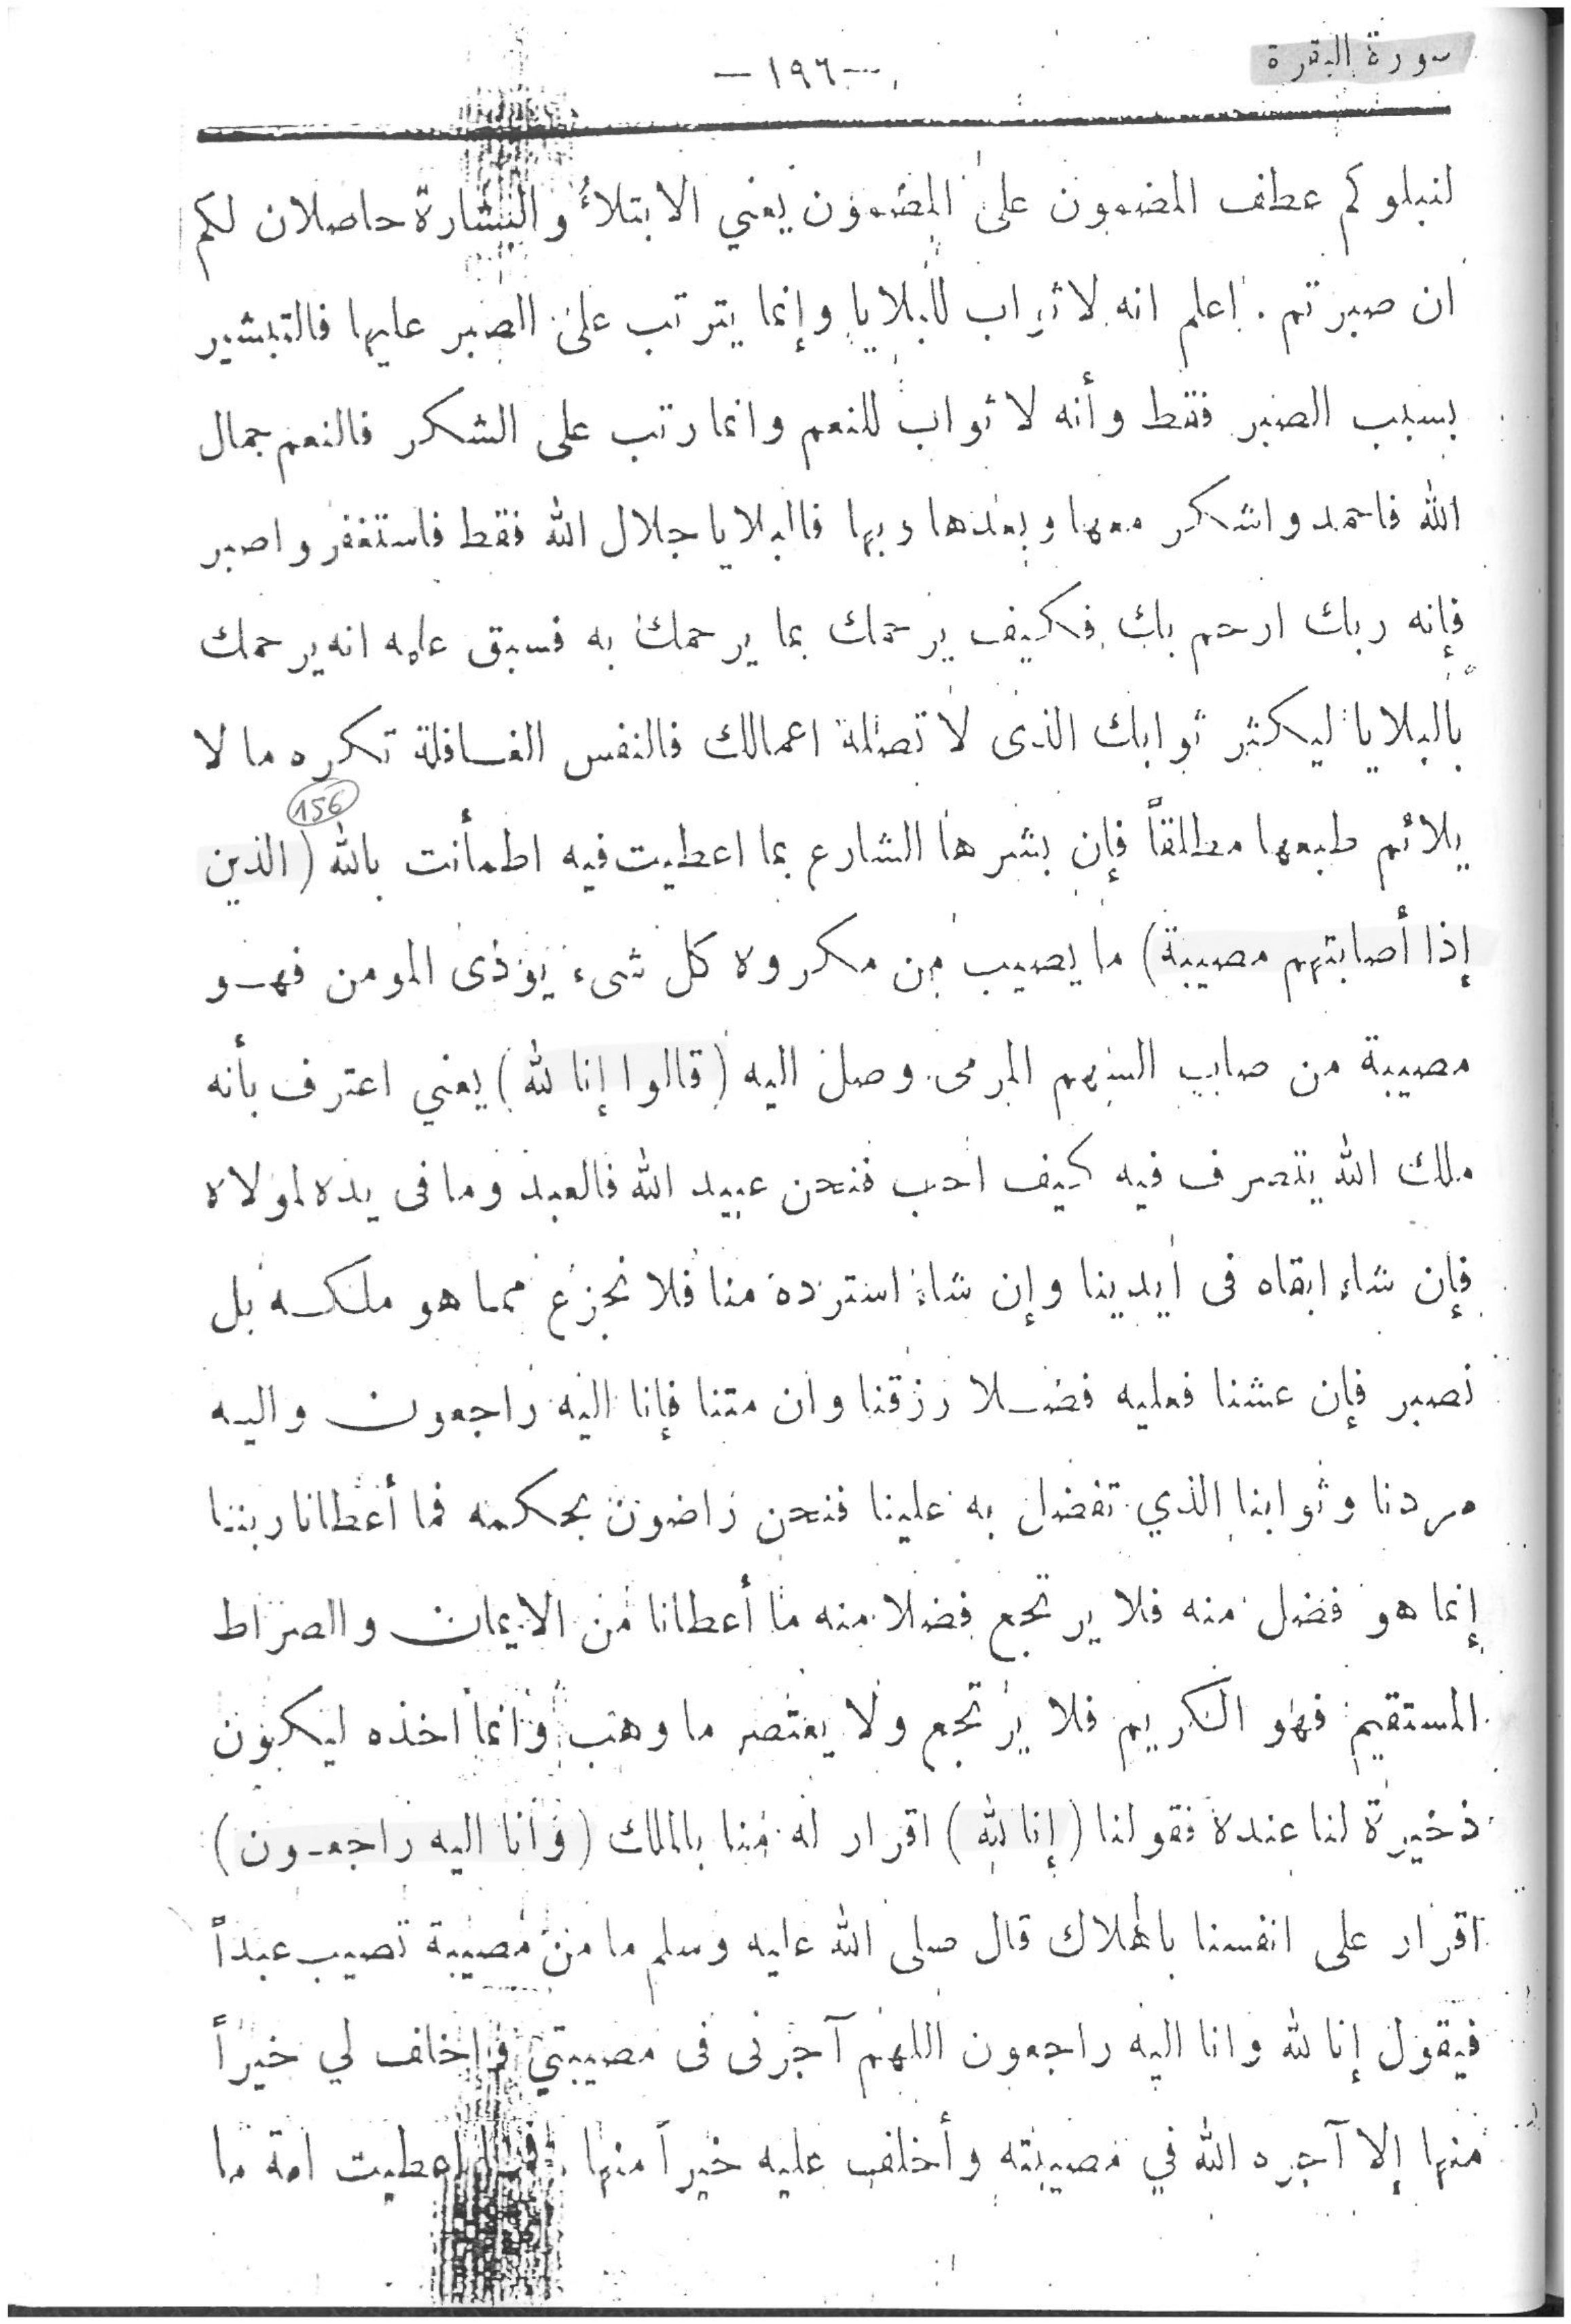 سورة البقرة
— ١٩٦ —
لنبلوكم عطف المضمون على المضمون يعني الابتلاء والبشارة حاصلان لكم
ان صبرتم . اعلم انه لا ثواب للبلايا وإنما يترتب على الصبر عليها فالتبشير
بسبب الصبر فقط وأنه لا ثواب للنعم وانما رتب على الشكر فالنعم جمال
الله فاحمد واشكر معها وبعدها وبها فالبلايا جلال الله فقط فاستغفر واصبر
فإنه ربك ارحم بك فكيف يرحمك بما يرحمك به فسبق علمه انه يرحمك
بالبلايا ليكثر ثوابك الذى لا تصله اعمالك فالنفس الغافلة تكره ما لا
156
يلائم طبعها مطلقاً فإن بشرها الشارع بما اعطيت فيه اطمأنت بالله (الذين
إذا أصابتهم مصيبة) ما يصيب من مكروه كل شىء يؤذى المومن فهو
مصيبة من صاب السهم المرمى وصل اليه (قالوا إنا لله) يعني اعترف بأنه
ملك الله يتصرف فيه كيف احب فنحن عبيد الله فالعبد وما فى يده لمولاه
فإن شاء ابقاه فى ايدينا وإن شاء استرده منا فلا نجزع مما هو ملكه بل
نصبر فإن عشنا فعليه فضلا رزقنا وان متنا فإنا اليه راجعون واليه
مردنا وثوابنا الذي تفضل به علينا فنحن راضون بحكمه فما أعطانا ربنا
إنما هو فضل منه فلا يرتجع فضلا منه ما أعطانا من الايمان والصراط
المستقيم فهو الكريم فلا يرتجع ولا يعتصر ما وهب وانما اخذه ليكون
ذخيرة لنا عنده فقولنا (إنا لله) اقرار له منا بالملك (وانا اليه راجعون)
اقرار على انفسنا بالهلاك قال صلى الله عليه وسلم ما من مصيبة تصيب عبداً
فيقول إنا لله وانا اليه راجعون اللهم آجرنى فى مصيبتي واخلف لي خيراً
منها إلا آجره الله في مصيبته وأخلف عليه خيراً منها اعطيت امة ما